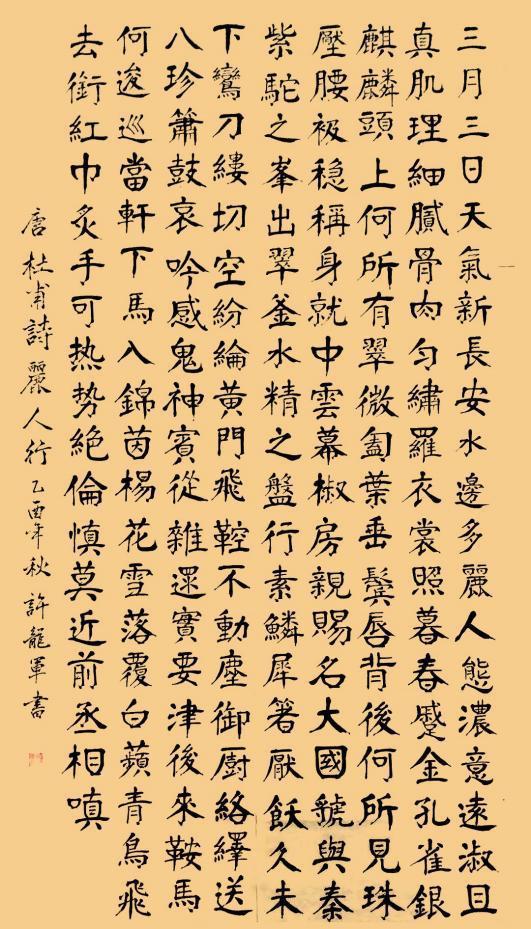 三月三日天氣新長安水邊多麗人態濃意遠淑且
真肌理細膩骨肉勻繡羅衣裳照暮春蹙金孔雀銀
麒麟頭上何所有翠微㔩葉垂鬢唇背後何所見珠
壓腰衱稳稱身就中雲幕椒房親賜名大國虢與秦
紫駝之峯出翠釜水精之盤行素鱗犀箸厭飫久未
下鸞刀縷切空紛綸黃門飛鞚不動塵御厨絡繹送
八珍簫鼓哀吟感鬼神賓從雜遝實要津後來鞍馬
何逡巡當軒下馬入錦茵楊花雪落覆白蘋青鳥飛
去銜紅巾炙手可热势絕倫慎莫近前丞相嗔
唐杜甫詩麗人行乙酉年秋許龍軍書